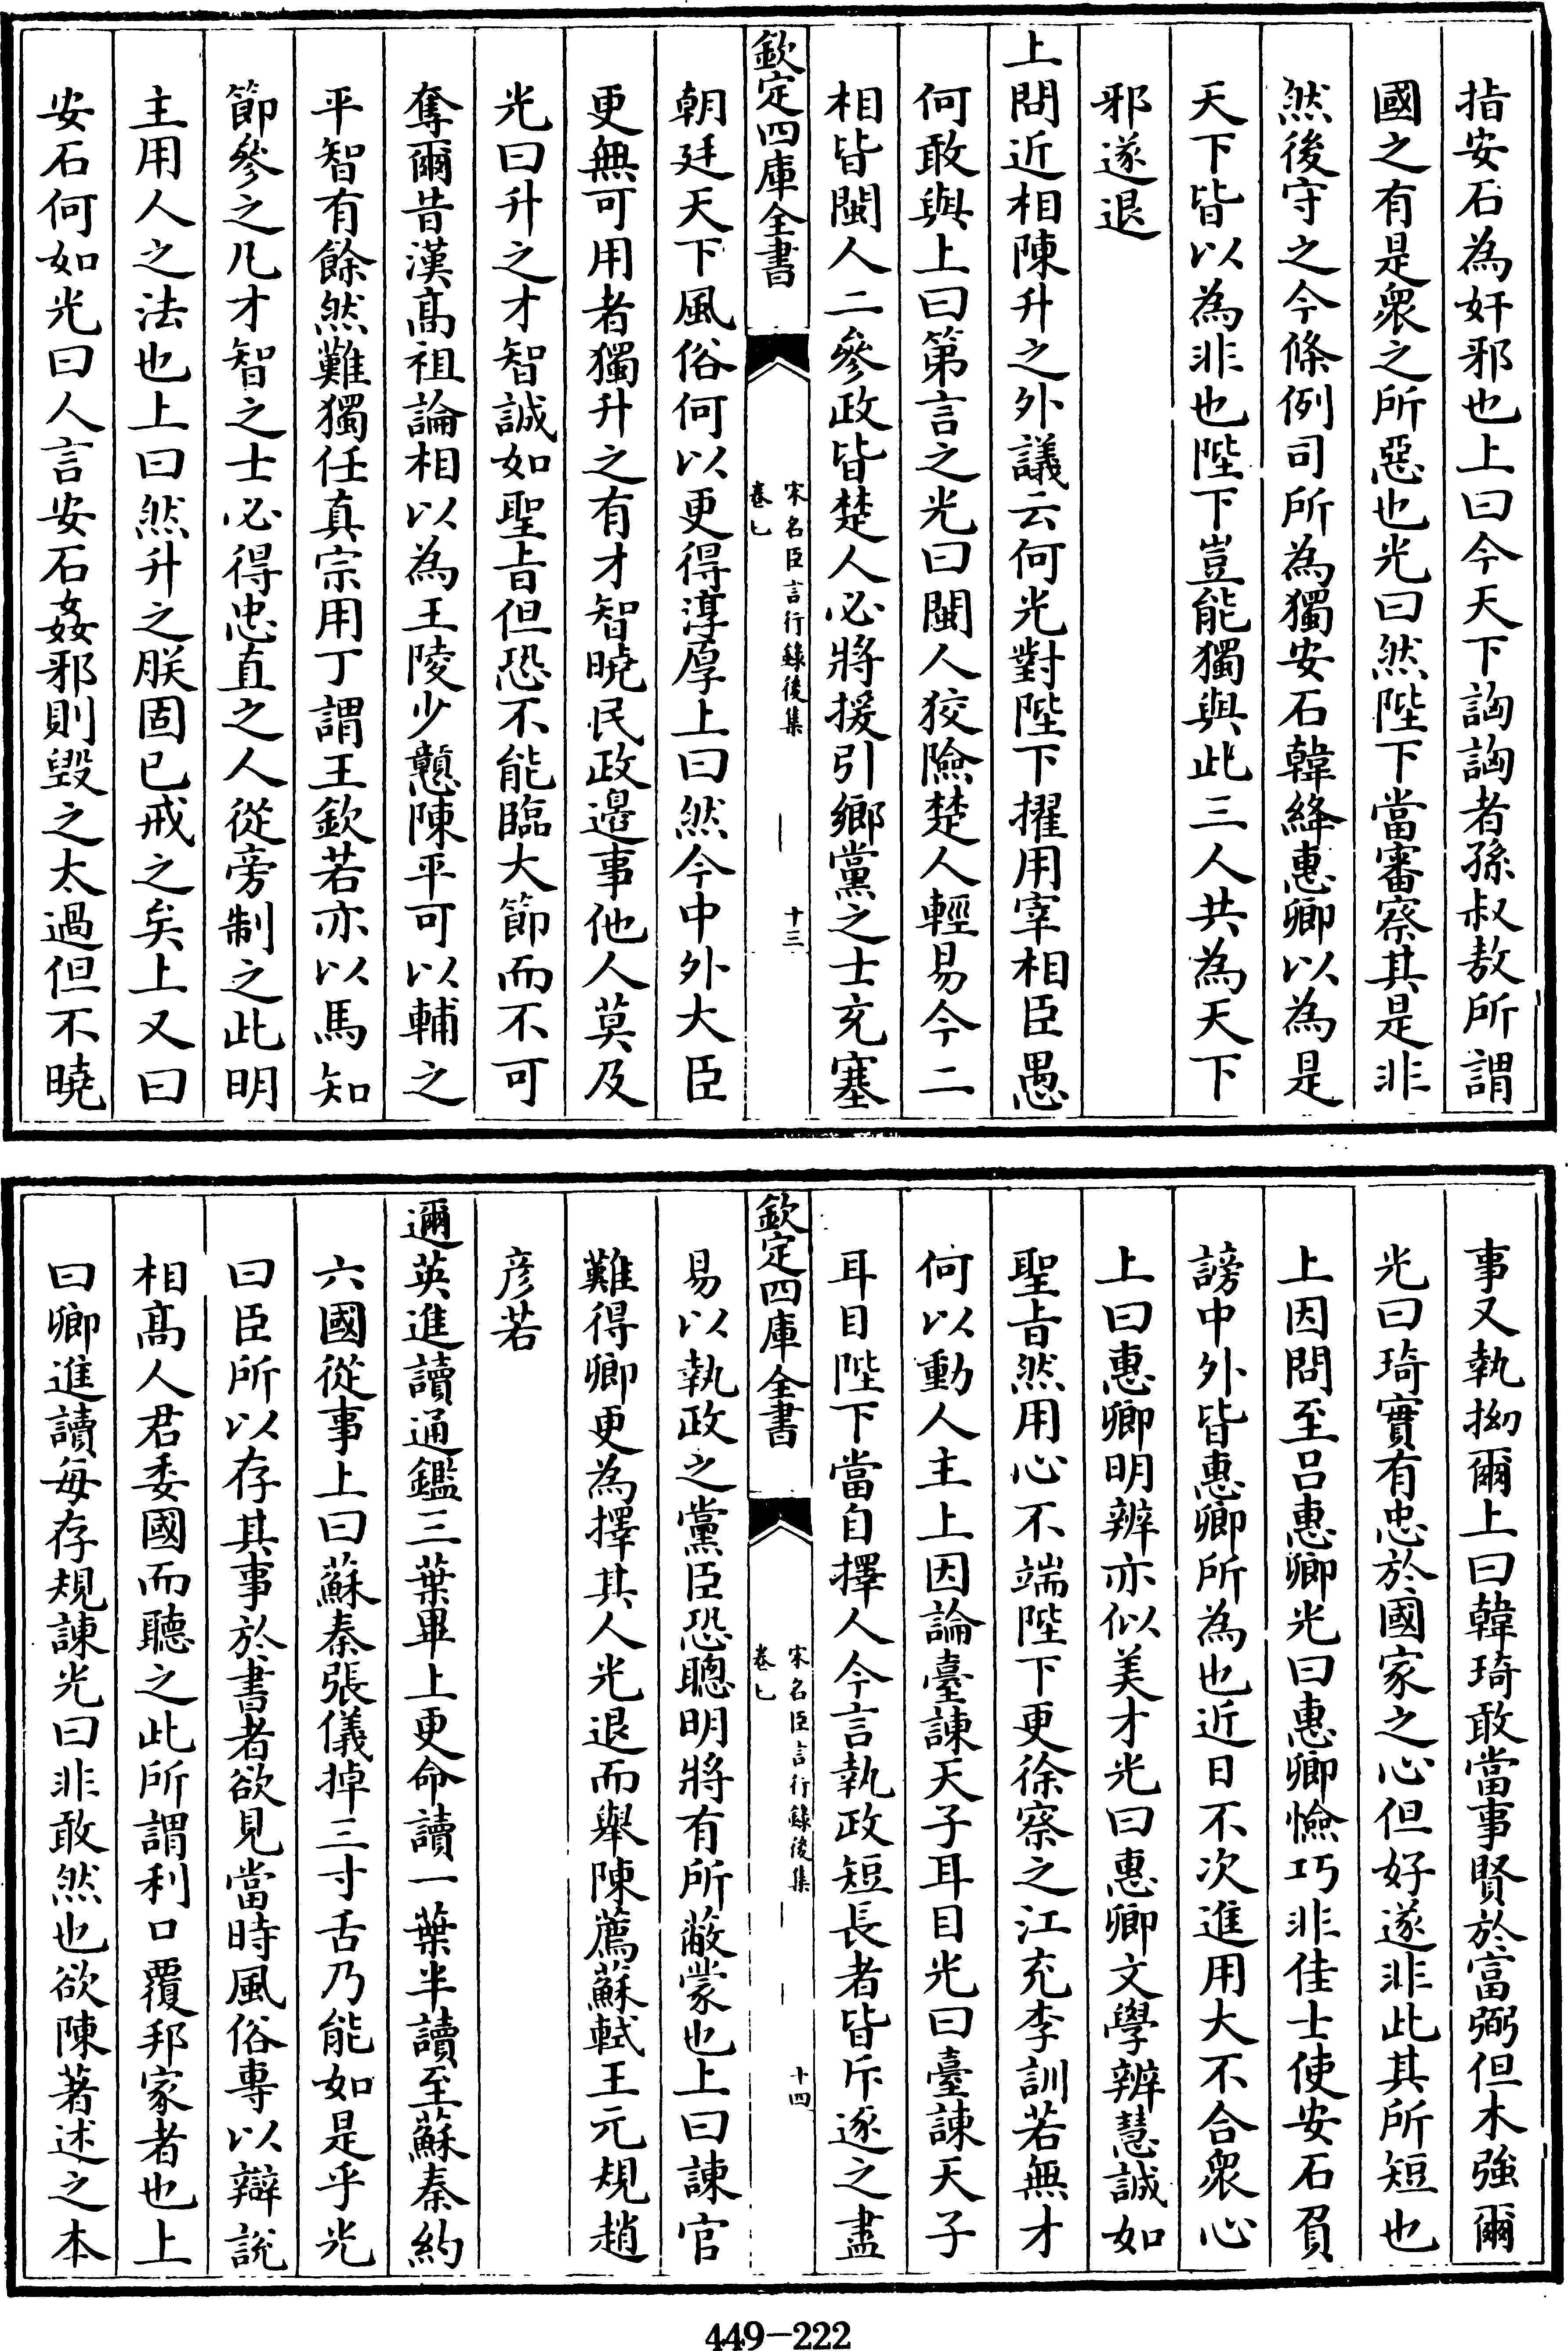 指安石為奸邪也上曰今天下訩訩者孫叔敖所謂
國之有是衆之所惡也光曰然陛下當審察其是非
然後守之今條例司所為獨安石韓絳惠卿以為是
天下皆以為非也陛下豈能獨與此三人共為天下
邪遂退
上問近相陳升之外議云何光對陛下擢用宰相臣愚
何敢與上曰第言之光曰閩人狡險楚人輕易今二
相皆閩人二參政皆楚人必將援引鄉黨之士充塞
欽定四庫全書
宋名臣言行錄後集
卷七
十三
朝廷天下風俗何以更得淳厚上曰然今中外大臣
更無可用者獨升之有才智曉民政邉事他人莫及
光曰升之才智誠如聖旨但恐不能臨大節而不可
奪爾昔漢髙祖論相以為王陵少戇陳平可以輔之
平智有餘然難獨任真宗用丁謂王欽若亦以馬知
節參之凡才智之士必得忠直之人從旁制之此明
主用人之法也上曰然升之朕固已戒之矣上又曰
安石何如光曰人言安石姦邪則毀之太過但不曉
事又執拗爾上曰韓琦敢當事賢於富弼但木強爾
光曰琦實有忠於國家之心但好遂非此其所短也
上因問至呂惠卿光曰惠卿憸巧非佳士使安石負
謗中外皆惠卿所為也近日不次進用大不合衆心
上曰惠卿明辨亦似美才光曰惠卿文學辨慧誠如
聖旨然用心不端陛下更徐察之江充李訓若無才
何以動人主上因論臺諫天子耳目光曰臺諫天子
耳目陛下當自擇人今言執政短長者皆斥逐之盡
欽定四庫全書
宋名臣言行錄後集
卷七
十四
易以執政之黨臣恐聰明將有所蔽蒙也上曰諫官
難得卿更為擇其人光退而舉陳薦蘇軾王元規趙
彦若
邇英進讀通鑑三葉畢上更命讀一葉半讀至蘇秦約
六國從事上曰蘇秦張儀掉三寸舌乃能如是乎光
曰臣所以存其事於書者欲見當時風俗專以辯說
相髙人君委國而聽之此所謂利口覆邦家者也上
曰卿進讀每存規諫光曰非敢然也欲陳著述之本
449-222